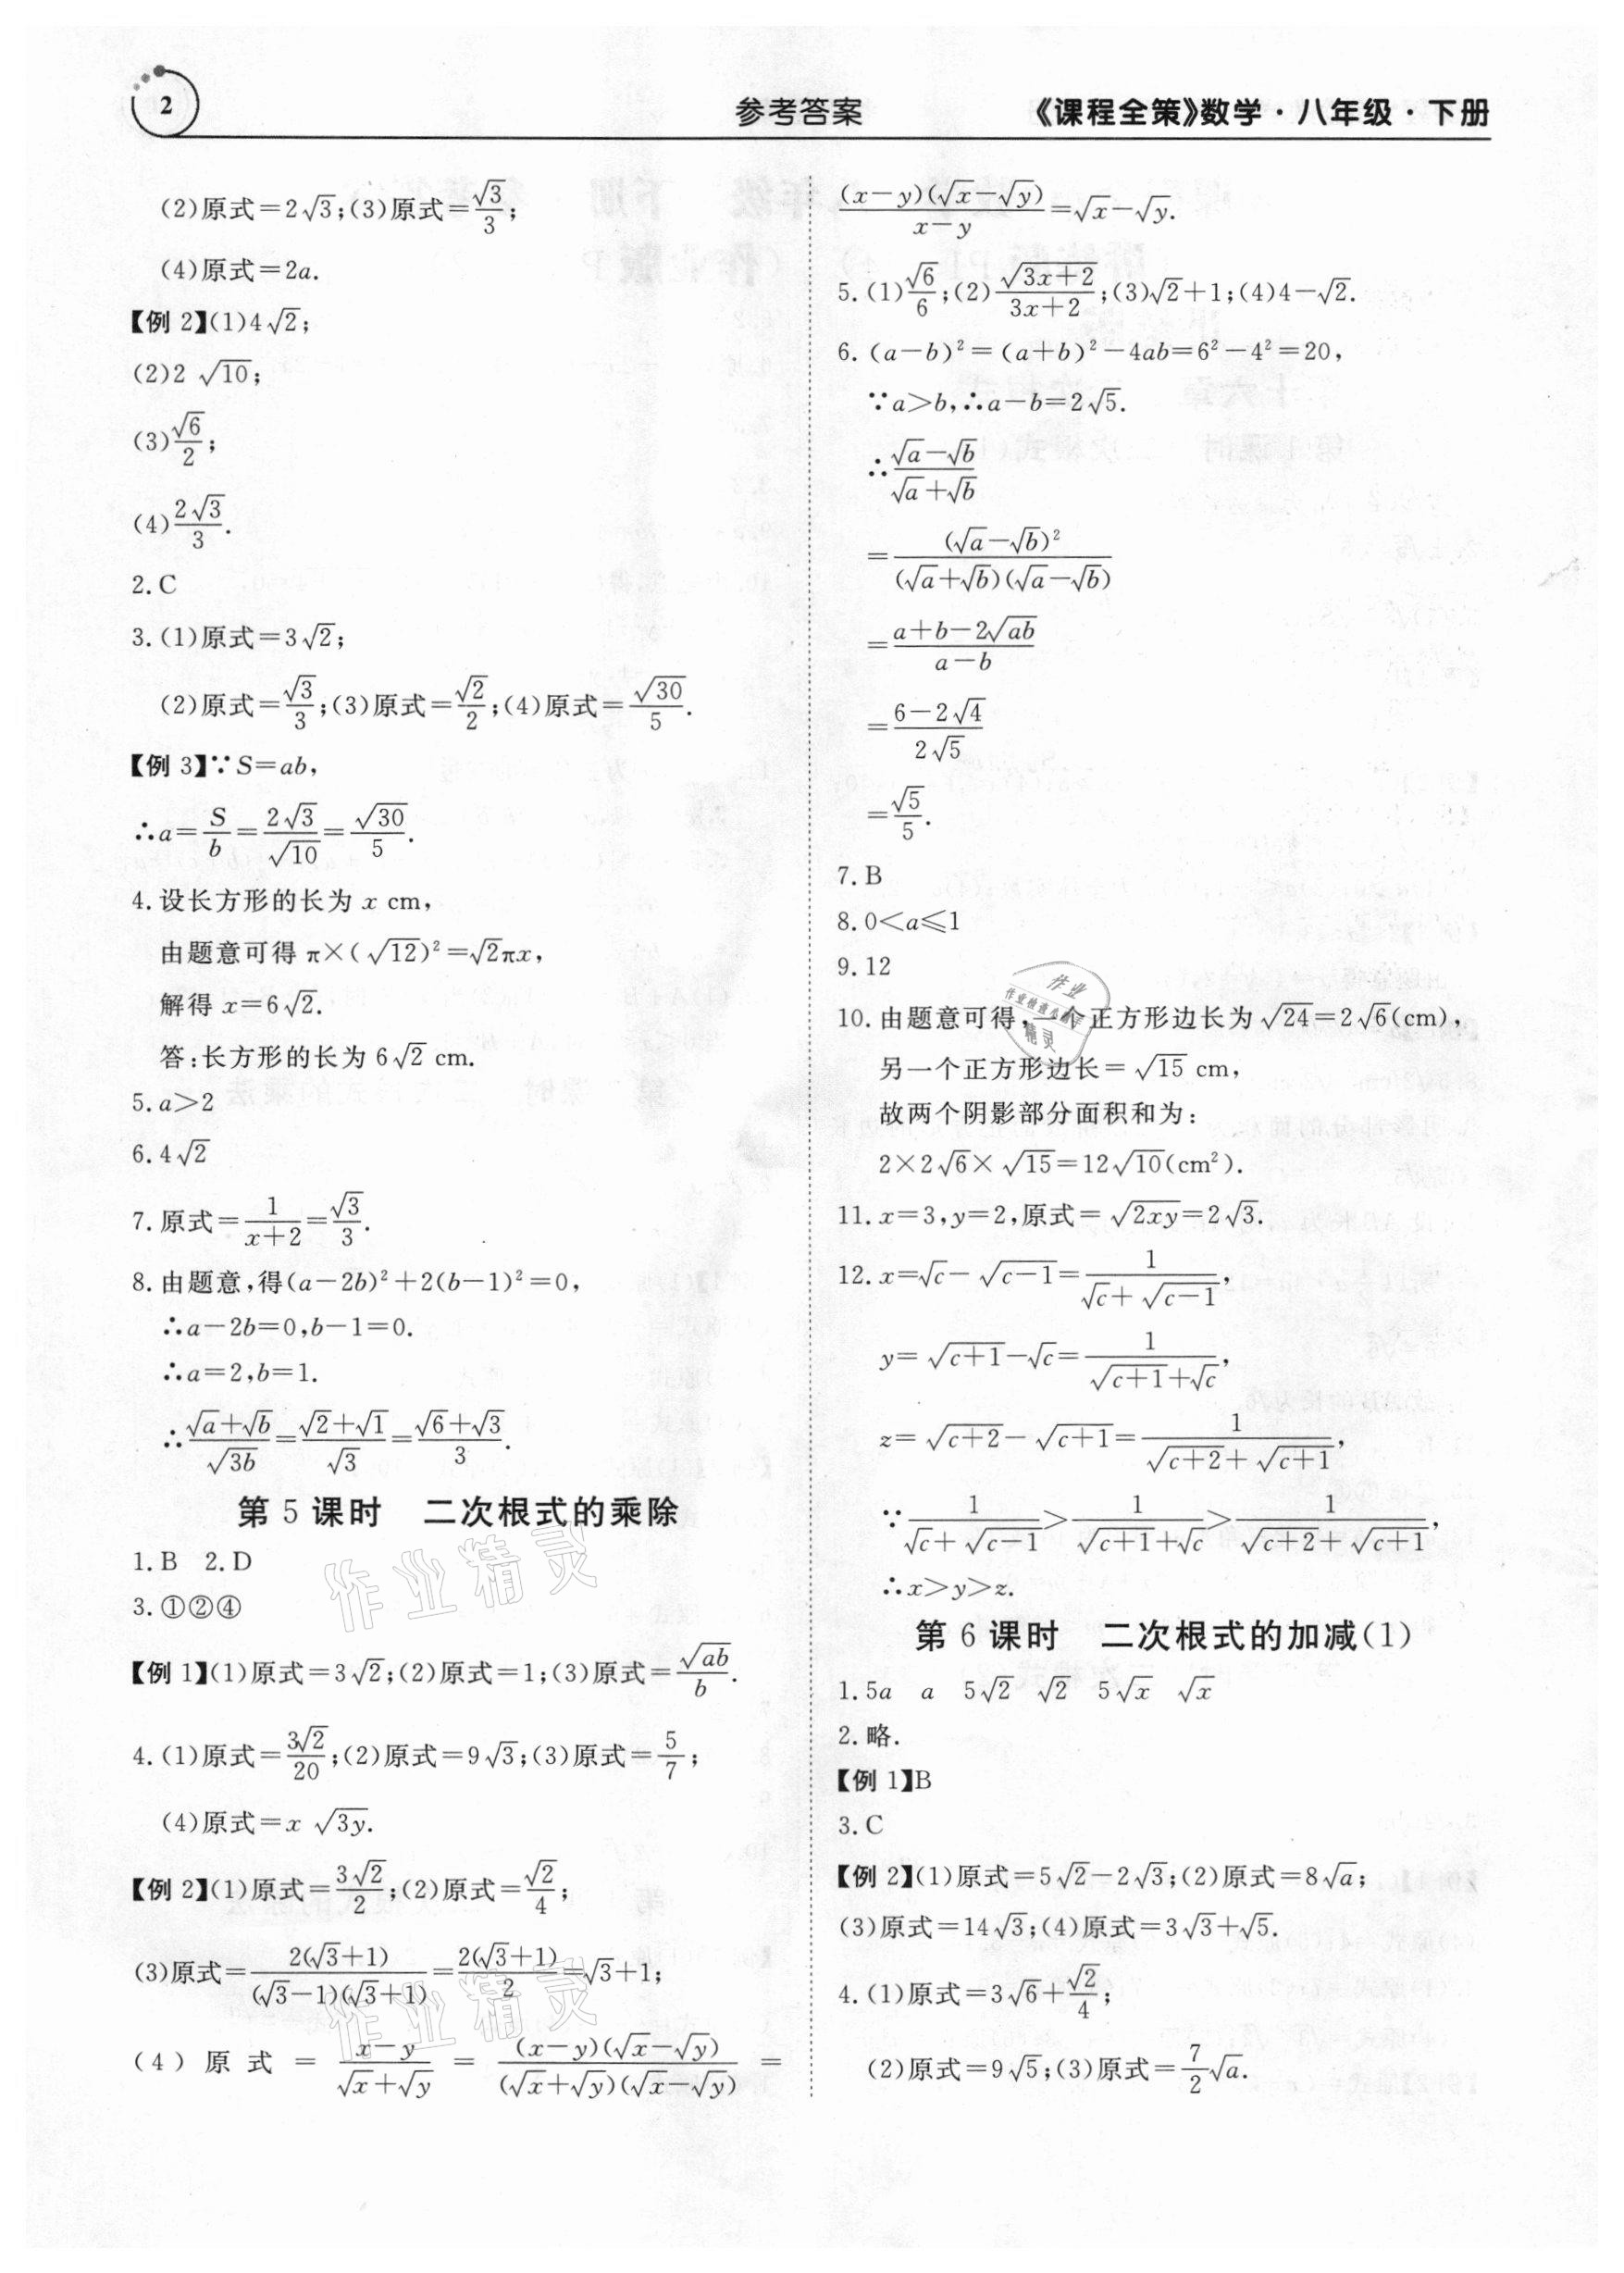 2
参考答案
《课程全策》数学·八年级·下册
(2)原式=2√3;(3)原式=√3/3;
(4)原式=2a.
【例 2】(1)4√2;
(2)2√10;
(3)√6/2;
(4)2√3/3.
2.C
3.(1)原式=3√2;
(2)原式=√3/3;(3)原式=√2/2;(4)原式=√30/5.
【例 3】∵S=ab,
∴a=S/b=2√3/√10=√30/5.
4.设长方形的长为 x cm,
由题意可得 π×(√12)²=√2πx,
解得 x=6√2.
答:长方形的长为 6√2 cm.
5.a>2
6.4√2
7.原式=1/(x+2)=√3/3.
8.由题意,得(a-2b)²+2(b-1)²=0,
∴a-2b=0,b-1=0.
∴a=2,b=1.
∴(√a+√b)/√(3b)=(√2+√1)/√3=(√6+√3)/3.
第 5 课时 二次根式的乘除
1.B 2.D
3.①②④
【例 1】(1)原式=3√2;(2)原式=1;(3)原式=√(ab)/b.
4.(1)原式=3√2/20;(2)原式=9√3;(3)原式=5/7;
(4)原式=x√(3y).
【例 2】(1)原式=3√2/2;(2)原式=√2/4;
(3)原式=2(√3+1)/((√3-1)(√3+1))=2(√3+1)/2=√3+1;
(4)原式=(x-y)/(√x+√y)=(x-y)(√x-√y)/((√x+√y)(√x-√y))=
(x-y)(√x-√y)/(x-y)=√x-√y.
5.(1)√6/6;(2)√(3x+2)/(3x+2);(3)√2+1;(4)4-√2.
6.(a-b)²=(a+b)²-4ab=6²-4²=20,
∵a>b,∴a-b=2√5.
∴(√a-√b)/(√a+√b)
=(√a-√b)²/((√a+√b)(√a-√b))
=(a+b-2√(ab))/(a-b)
=(6-2√4)/(2√5)
=√5/5.
7.B
8.0<a≤1
9.12
10.由题意可得,一个正方形边长为√24=2√6(cm),
另一个正方形边长=√15 cm,
故两个阴影部分面积和为:
2×2√6×√15=12√10(cm²).
11.x=3,y=2,原式=√(2xy)=2√3.
12.x=√c-√(c-1)=1/(√c+√(c-1)),
y=√(c+1)-√c=1/(√(c+1)+√c),
z=√(c+2)-√(c+1)=1/(√(c+2)+√(c+1)),
∵1/(√c+√(c-1))>1/(√(c+1)+√c)>1/(√(c+2)+√(c+1)),
∴x>y>z.
第 6 课时 二次根式的加减(1)
1.5a a 5√2 √2 5√x √x
2.略.
【例 1】B
3.C
【例 2】(1)原式=5√2-2√3;(2)原式=8√a;
(3)原式=14√3;(4)原式=3√3+√5.
4.(1)原式=3√6+√2/4;
(2)原式=9√5;(3)原式=7/2√a.
作业精灵
作业精灵
作业
精灵